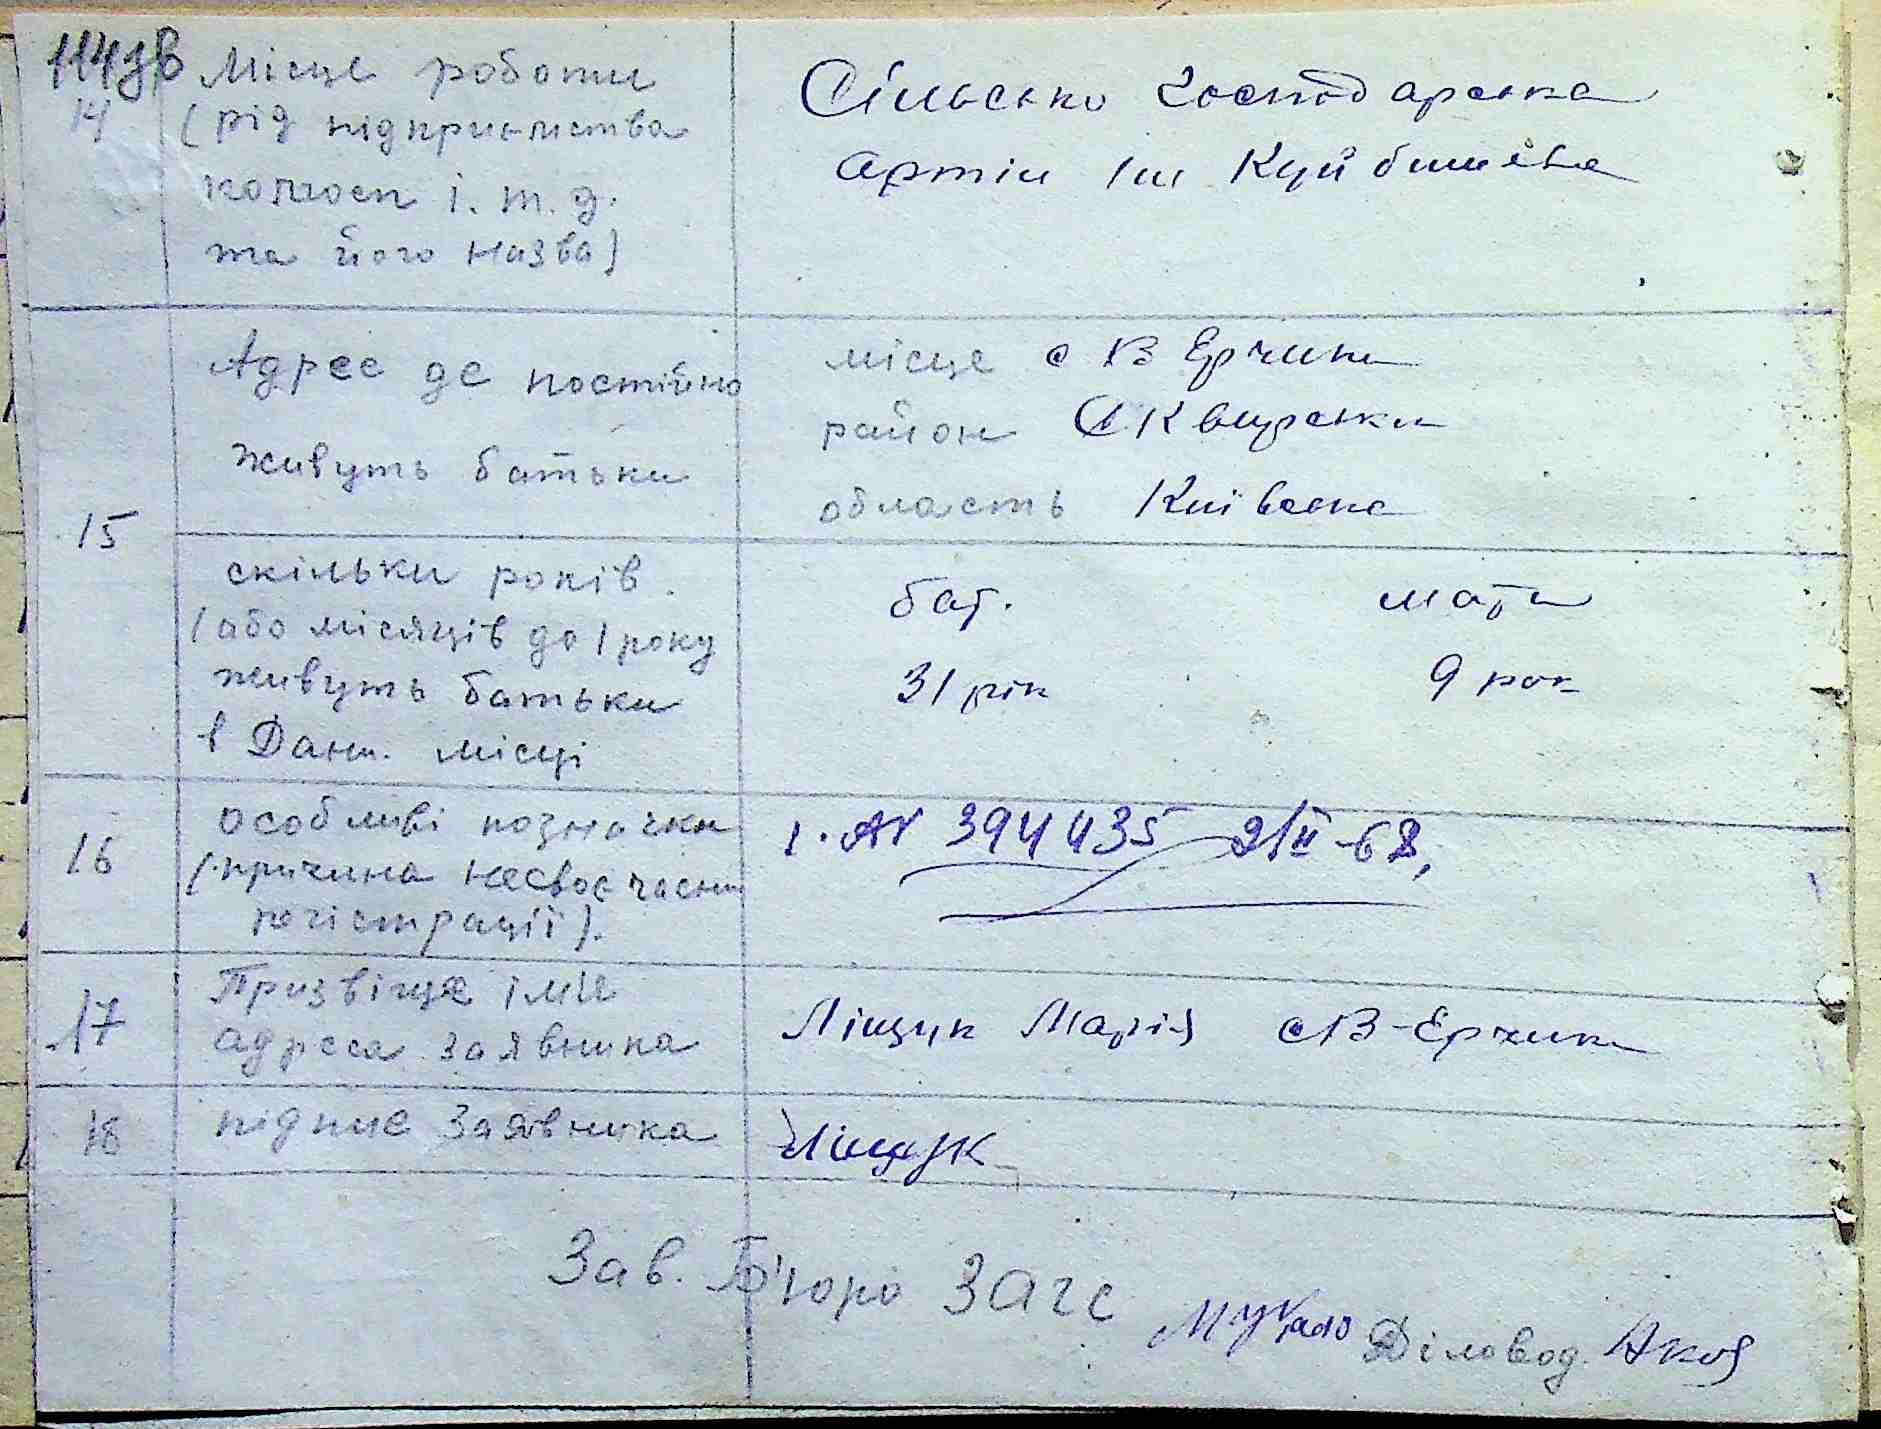 114зв
14 Місце роботи
(рід підприємства
колгосп і. т. д.
та його назва)
Сільсько Господарська
артіл Ім Куйбишева
15
Адрес де постійно
живуть батьки
місце с В Єрчики
район Сквирски
область Київсска
скільки років
(або місяців до 1 року
живуть батьки
в Дант. місці
бат. мати
31 рік 9 рок
16 особливі позначки
(причина несвоєчасн
регістрації).
1. АN 394435 21 ІІ-68.
17 Призвіще імя
адреса заявника
Ліщук Марія с В-Єрчики
18 підпис Заявника
Ліщук
Зав. Б'юро ЗАГС Діловод.